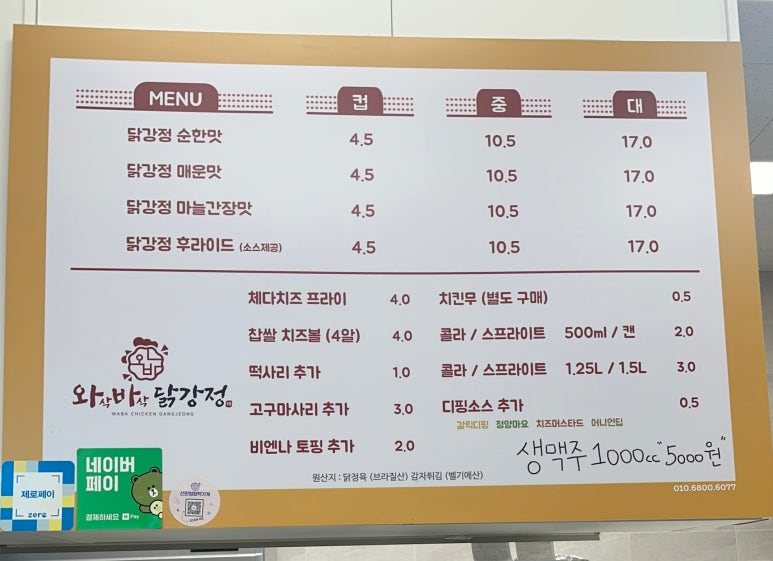 MENU 컵 중 대
닭강정 순한맛 4.5 10.5 17.0
닭강정 매운맛 4.5 10.5 17.0
닭강정 마늘간장맛 4.5 10.5 17.0
닭강정 후라이드 (소스제공) 4.5 10.5 17.0
체다치즈 프라이 4.0 치킨무 (별도 구매) 0.5
찹쌀 치즈볼 (4알) 4.0 콜라 / 스프라이트 500ml / 캔 2.0
떡사리 추가 1.0 콜라 / 스프라이트 1.25L / 1.5L 3.0
고구마사리 추가 3.0 디핑소스 추가 0.5
갈릭디핑 청양마요 치즈머스타드 어니언딥
비엔나 토핑 추가 2.0
생맥주 1000cc "5000원"
와삭바삭 닭강정
WABA CHICKEN GANGJEONG
원산지 : 닭정육 (브라질산) 감자튀김 (벨기에산)
010.6800.6077
제로페이
zero
네이버
페이
결제하세요 N Pay
SCAN ME